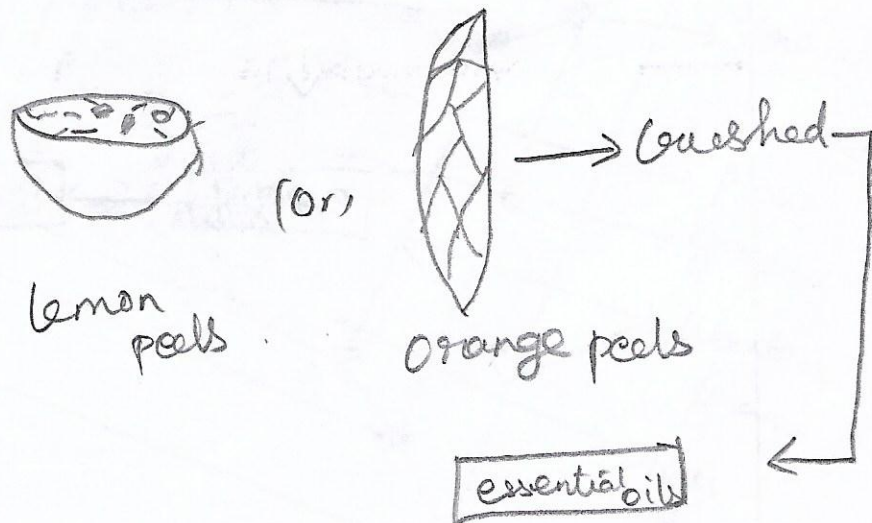 (Or)
Crushed
lemon
peels.
Orange peels
essential oils